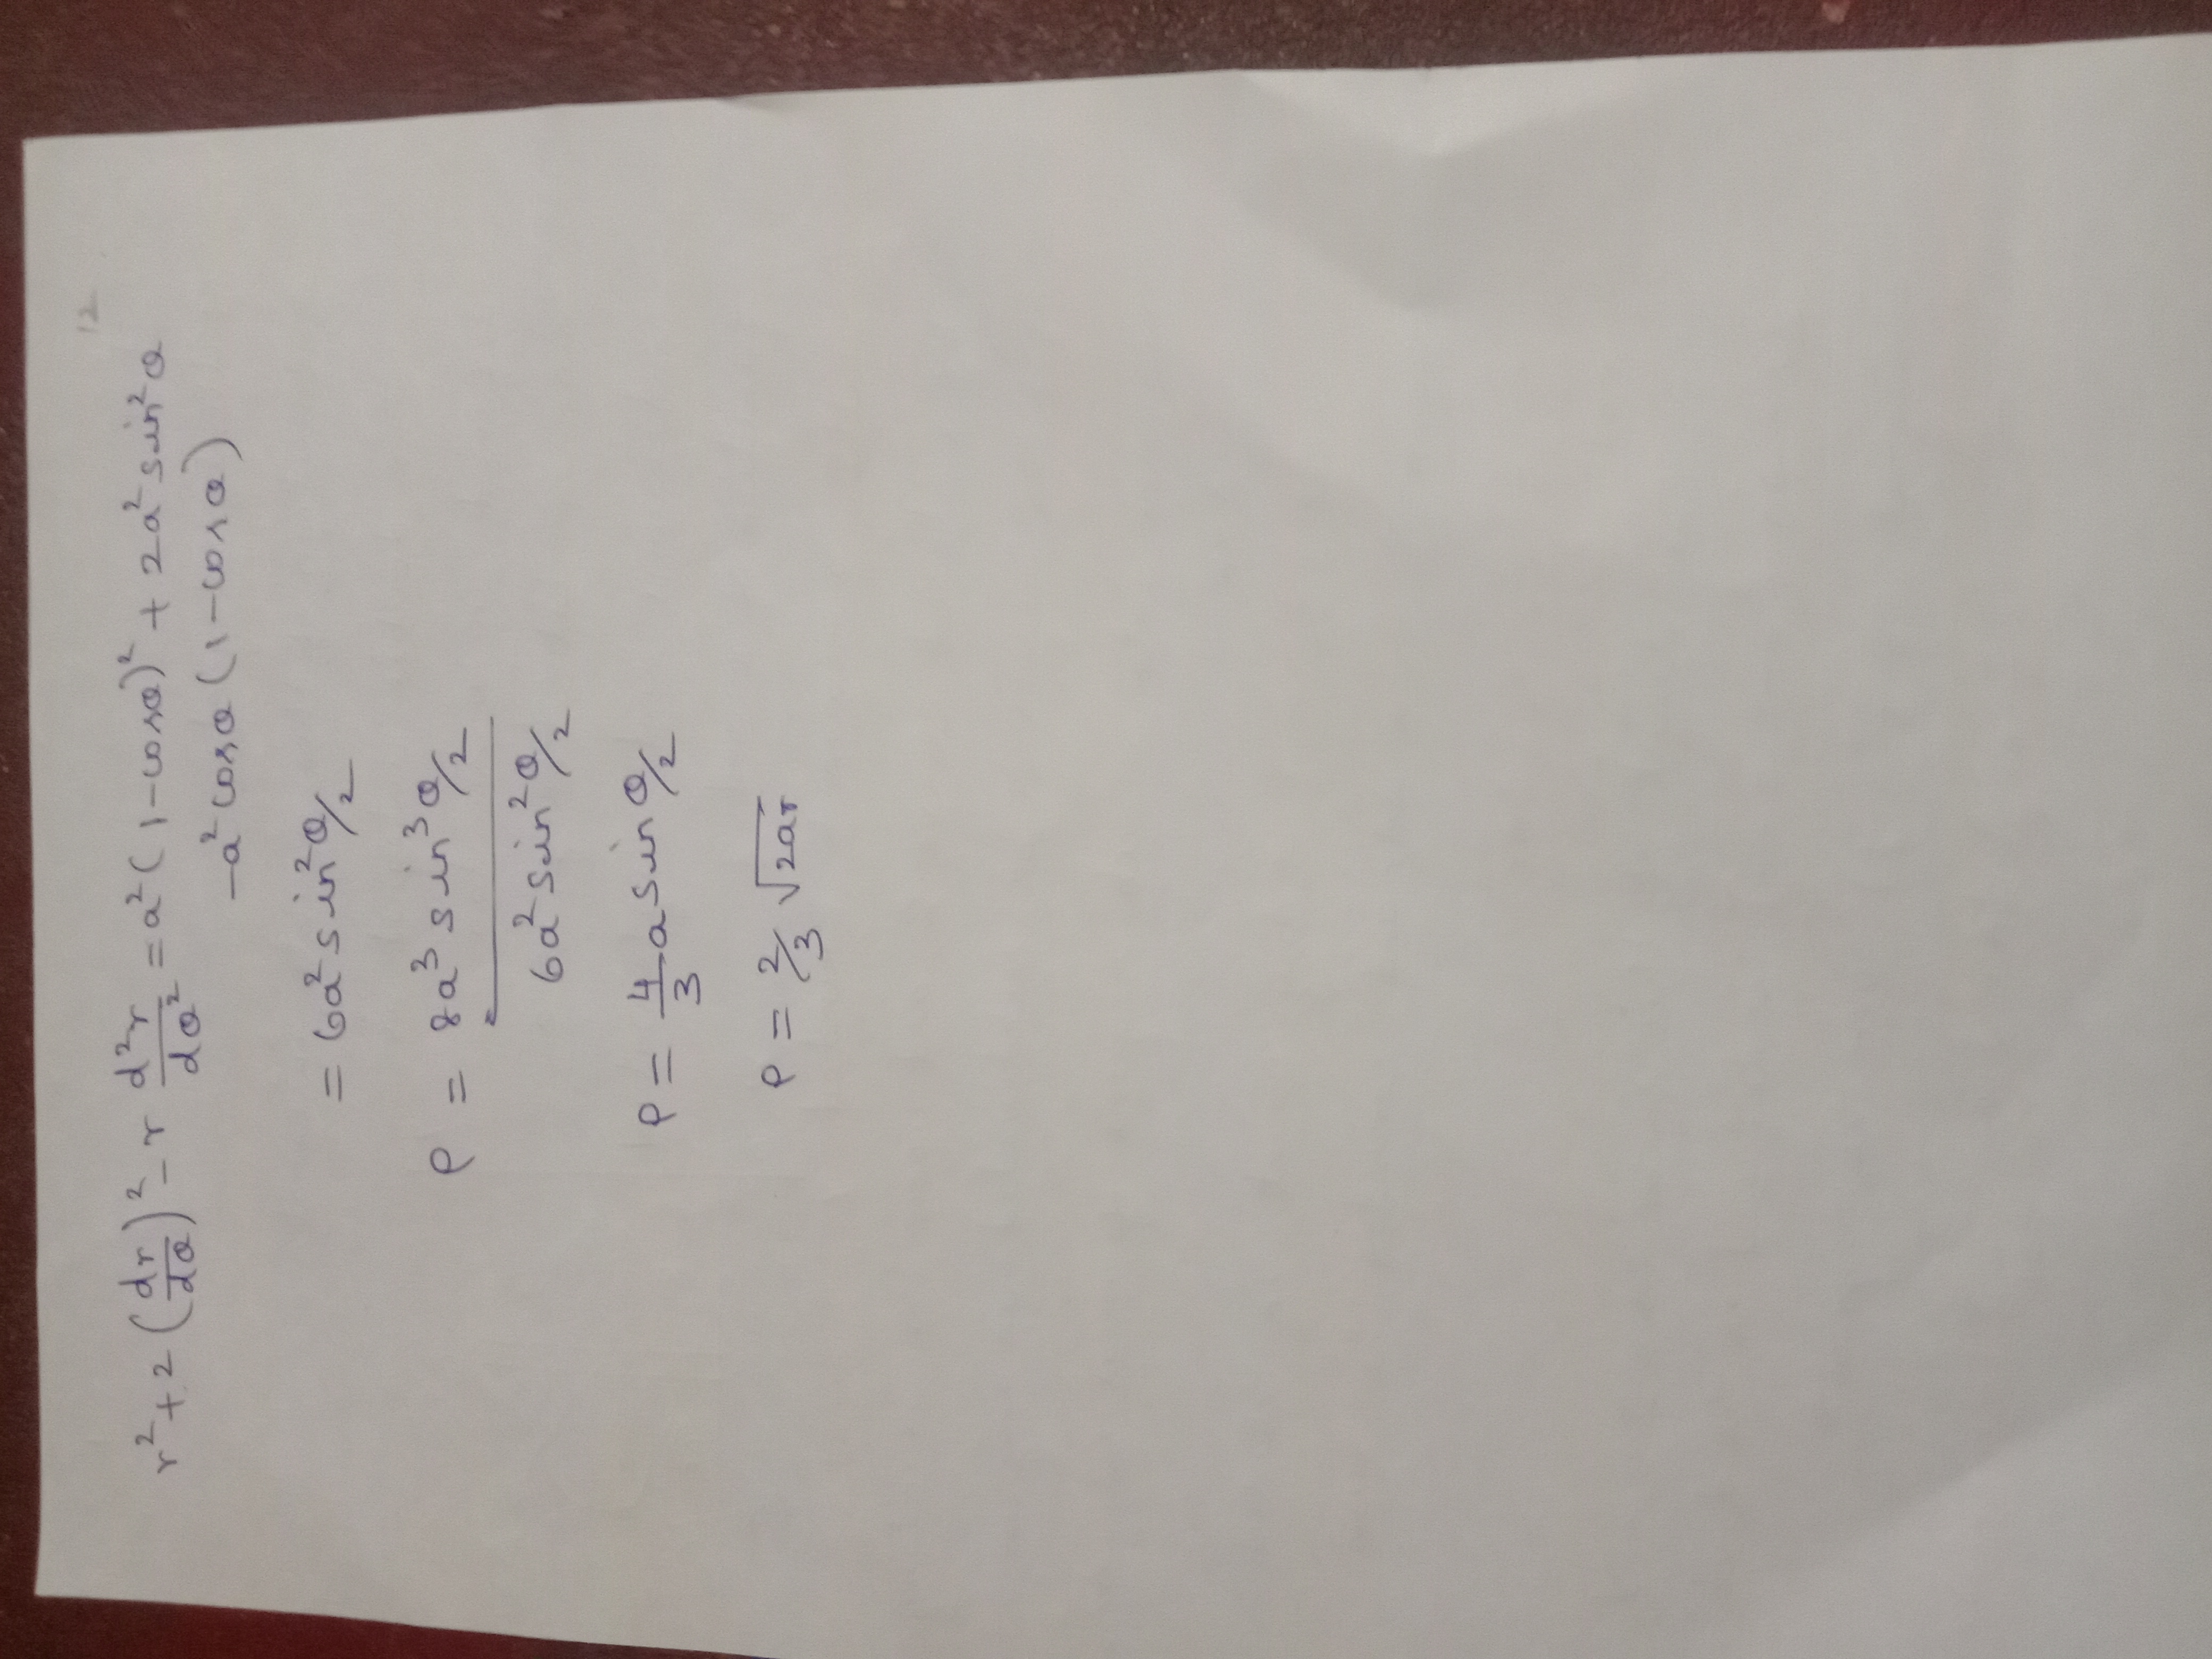 12
r² + 2 (dr/dθ)² - r d²r/dθ² = a² (1-cosθ)² + 2a² sin²θ
-a² cosθ (1-cosθ)
= 6a² sin² θ/2
ρ = 8a³ sin³ θ/2
6a² sin² θ/2
ρ = 4/3 a sin θ/2
ρ = 2/3 √2ar